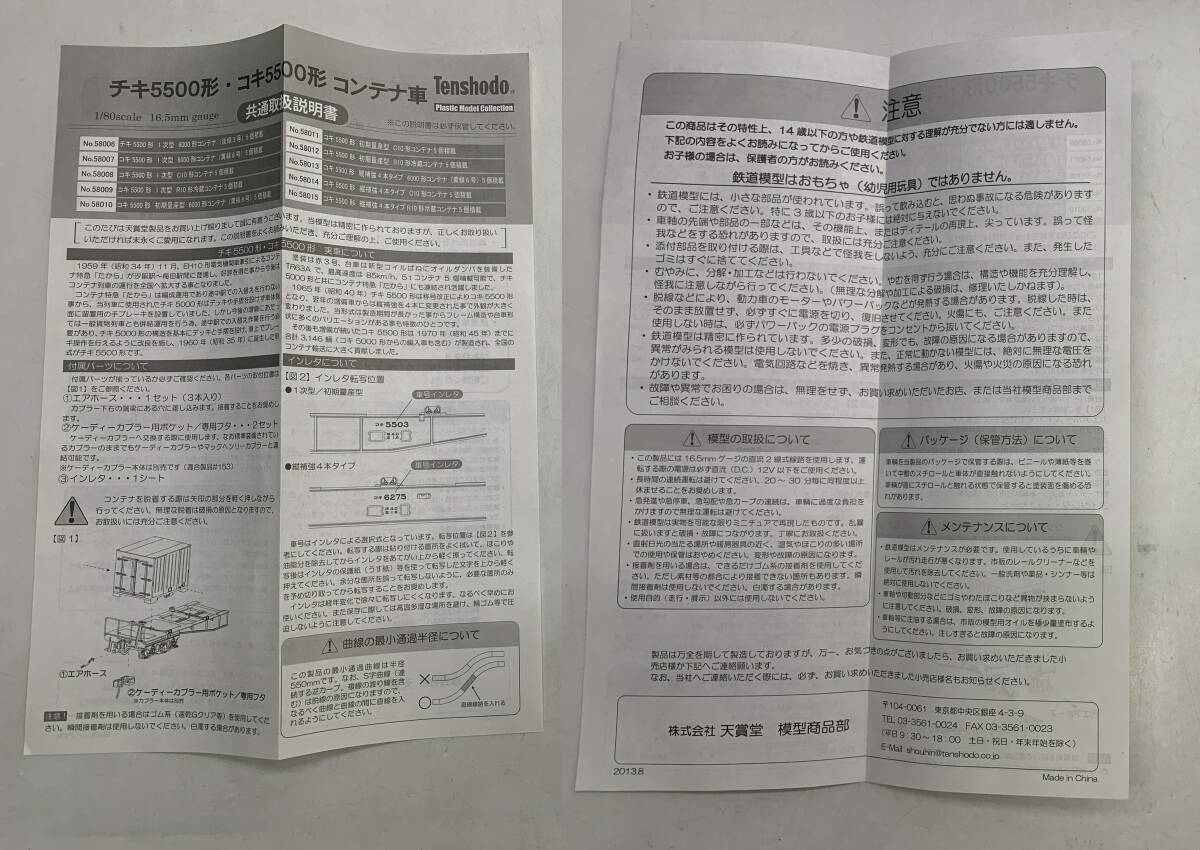 チキ5500形・コキ5500形 コンテナ車
Tenshodo
Plastic Model Collection
1/80scale 16.5mm gauge
共通取扱説明書
※この説明書は必ず保管してください。
No.58006 チキ 5500形 1次型 6000形コンテナ（決線3号）5個積載
No.58007 チキ 5500形 1次型 6000形コンテナ（黄緑6号）5個積載
No.58008 チキ 5500形 1次型 C10形コンテナ5個積載
No.58009 チキ 5500形 1次型 R10形冷蔵コンテナ5個積載
No.58010 コキ 5500形 初期量産型 6000形コンテナ（黄緑6号）5個積載
No.58011 コキ 5500形 初期量産型 C10形コンテナ5個積載
No.58012 コキ 5500形 初期量産型 R10形冷蔵コンテナ5個積載
No.58013 コキ 5500形 縦補強4本タイプ 6000形コンテナ（黄緑6号）5個積載
No.58014 コキ 5500形 縦補強4本タイプ C10形コンテナ5個積載
No.58015 コキ 5500形 縦補強4本タイプ R10形冷蔵コンテナ5個積載
このたびは天賞堂製品をお買い上げ賜りまして誠に有難うございます。当模型は精密に作られておりますが、正しくお取り扱い
いただければ末永くご愛用になれます。この説明書をよくお読みいただき、充分ご理解の上、ご使用ください。
チキ5500形・コキ5500形 実車について
1959年（昭和34年）11月、EH10形電気機関車牽引によるコンテ
ナ特急「たから」が汐留駅～梅田駅間に登場し、好評を得た事から今後は
コンテナ列車の運行を全国へ拡大する事となりました。
コンテナ特急「たから」は編成運用であり途中駅での入替えを行わない
事から、当列車に使用されたチキ5000形はデッキや手摺を設けず車体側
面に留置用の手ブレーキを設置していました。しかし今後の増備にあたっ
ては一般貨物列車とも併結運用を行う為、途中駅での入替え作業を行う必
要があり、チキ5000形の構造を基本にデッキと手摺を設け、車上でブレー
キ操作を行えるように改良を施し、1960年（昭和35年）に量産した形
式がチキ5500形です。
塗装は赤3号、台車は新型コイルばねにオイルダンパを装備した
TR63Aで、最高速度は85km/h、5tコンテナ5個積載可能で、チキ
5000形と共にコンテナ特急「たから」にも連結され活躍しました。
1965年（昭和40年）チキ5500形は称号改正によりコキ5500形
となり、翌年の増備車からは縦補強を4本に変更された事で外観が大きく
変わりました。当形式は製造期間が長かった事からフレーム構造や台車形
状に多くのバリエーションがある事も特徴のひとつです。
その後も増備が続いたコキ5500形は1970年（昭和45年）までに
合計3,146輌（コキ5000形からの編入車も含む）が製造され、全国の
コンテナ輸送に大きく貢献しました。
付属パーツについて
付属パーツが揃っているか必ずご確認ください。各パーツの取付位置は
【図1】をご参照ください。
①エアホース・・・1セット（3本入り）
カプラー下右の端梁にある穴に差し込みます。接着することをお奨めし
ます。
②ケーディーカプラー用ポケット／専用フタ・・・2セット
ケーディーカプラーへ交換する際に使用します。なお標準装備されてい
るカプラーのままでもケーディーカプラーやマックヘンリーカプラーと連
結可能です。
※ケーディーカプラー本体は別売です（適合製品#153）
③インレタ・・・1シート
コンテナを脱着する際は矢印の部分を軽く押しながら
行ってください。無理な脱着は破損の原因となりますので、
お取扱いには充分ご注意ください。
【図1】
①エアホース
②ケーディーカプラー用ポケット／専用フタ
※カプラー本体は別売
注意！…接着剤を用いる場合はゴム系（速乾Gクリア等）を使用してくだ
さい。瞬間接着剤は使用しないでください。白濁する場合があります。
インレタについて
【図2】インレタ転写位置
●1次型／初期量産型
車号インレタ
コキ5503
●縦補強4本タイプ
車号インレタ
コキ6275
車号はインレタによる選択式となっています。転写位置は【図2】を参
考にしてください。転写する際は貼り付ける箇所をよく拭いて、ほこりや
油脂分を除去してからインレタをあてがい上から軽く擦ってください。転
写後はインレタの保護紙（うす紙）等を使って転写した文字を上から軽く
押えてください。余分な箇所を誤って転写しないように、必要な箇所のみ
を予め切り取ってから転写することをお奨めします。
インレタは経年変化で徐々に転写しにくくなります。なるべく早めにお
使いください。また保存に際しては高温多湿な場所を避け、輪ゴム等で圧
迫しないように注意してください。
曲線の最小通過半径について
この製品の最小通過曲線は半径
550mmです。なお、S字曲線（連
続する逆カーブ。複線の渡り線を含
む）は脱線の原因になりますので、
なるべく曲線と曲線の間に直線を入
れるようにしてください。
直線線路を入れる
注意
この商品はその特性上、14歳以下の方や鉄道模型に対する理解が充分でない方には適しません。
下記の内容をよくお読みになってからご使用ください。
お子様の場合は、保護者の方がお読みください。
鉄道模型はおもちゃ（幼児用玩具）ではありません。
・鉄道模型には、小さな部品が使われています。誤って飲み込むと、思わぬ事故になる危険があります
ので、ご注意ください。特に3歳以下のお子様には絶対に与えないでください。
・車軸の先端や部品の一部などは、その機能上、またはディテールの再現上、尖っています。誤って怪
我などをする恐れがありますので、取扱には充分ご注意ください。
・添付部品を取り付ける際は、工具などで怪我をしないよう、充分にご注意ください。また、発生した
ゴミはすぐに捨ててください。
・むやみに、分解・加工などは行わないでください。やむを得ず行う場合は、構造や機能を充分理解し、
怪我に注意しながら行ってください。（無理な分解や加工による破損は、修理いたしかねます）
・脱線などにより、動力車のモーターやパワーパックなどが発熱する場合があります。脱線した時は、
そのまま放置せず、必ずすぐに電源を切り、復旧させてください。火傷にも、ご注意ください。また
使用しない時は、必ずパワーパックの電源プラグをコンセントから抜いてください。
・鉄道模型は精密に作られています。多少の破損、変形でも、故障の原因になる場合がありますので、
異常がみられる模型は使用しないでください。また、正常に動かない模型には、絶対に無理な電圧を
かけないでください。電気回路などを焼き、異常発熱する場合があり、火傷や火災の原因になる恐れ
があります。
・故障や異常でお困りの場合は、無理をせず、お買い求めいただいたお店、または当社模型部まで
ご相談ください。
模型の取扱について
・この製品には16.5mmゲージの直流2線式線路を使用します。運
転する際の電源は必ず直流（D.C.）12V以下をご使用ください。
・長時間の連続運転は避けてください。20～30分毎に同程度以上
休ませることをお奨めします。
・急発進や急停車、急勾配や急カーブの連続は、車輌に過度な負担を
かけますので無理な運転は避けてください。
・鉄道模型は実物を可能な限りミニチュアで再現したものです。乱暴
に扱いますと破損・故障につながります。丁寧にお取扱ください。
・直射日光の当たる場所や暖房器具の近く、湿気やほこりの多い場所
での使用や保管はおやめください。変形や故障の原因になります。
・接着剤を用いる場合は、できるだけゴム系の接着剤を使用してくだ
さい。ただし素材等の都合により接着できない箇所もあります。瞬
間接着剤は使用しないでください。白濁する場合があります。
・使用目的（走行・展示）以外には使用しないでください。
パッケージ（保管方法）について
車輌を当製品のパッケージで保管する際は、ビニールや薄紙等を巻
いて中敷のスチロールと車体が直接触れないようにしてください。
車輌が直にスチロールと触れる状態で保管すると塗装面を傷める恐
れがあります。
メンテナンスについて
・鉄道模型はメンテナンスが必要です。使用しているうちに車輪や
レールが汚れ走行が悪くなります。市販のレールクリーナーなどを
使用して汚れを除去してください。一般洗剤や薬品・シンナー等は
絶対に使用しないでください。
・車軸や可動部分などにゴミやわたぼこりなど異物が挟まらないよう
に注意してください。破損、変形、故障の原因になります。
・車軸等に注油する場合は、市販の模型用オイルを極少量塗布するよ
うにしてください。注しすぎると故障の原因になります。
製品は万全を期して製造しておりますが、万一、お気づきの点がございましたら、お買い求めいただきました小
売店様か下記へご連絡願います。
なお、当社へご連絡いただく際には、必ず、お買い求めいただきました小売店様名もお知らせください。
株式会社 天賞堂 模型商品部
〒104-0061 東京都中央区銀座4-3-9
TEL 03-3561-0024 FAX 03-3561-0023
（平日9：30～18：00 土日・祝日・年末年始を除く）
E-Mail shouhin@tenshodo.co.jp
2013.8
Made in China